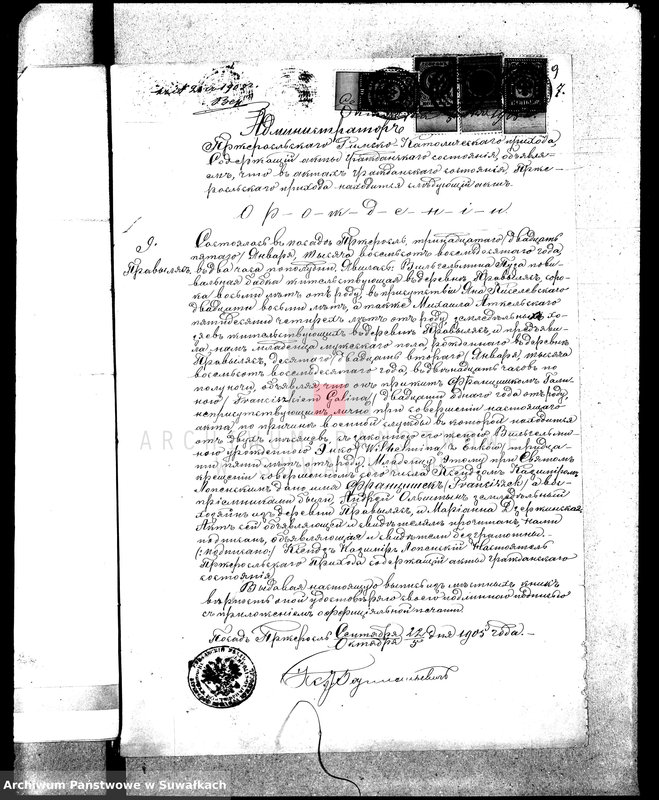 9
7.
Администраторъ
Пржеросльскаго Римско-Католическаго прихода,
Содержащій акты гражданскаго состоянія, объявля-
етъ, что въ актахъ гражданскаго состоянія Прже-
росльскаго прихода находится слѣдующій актъ.
О р-о-ж-д-е-н-і-и
9.
Правылясъ.
Состоялась въ посадѣ Пржеросль, тринадцатаго/двадцать
пятаго/Января, тысяча восемьсотъ восемьдесятаго года,
въ два часа пополудни. Явилась: Вильгельмина
бабка жительствующая въ деревнѣ Правылясъ, соро-
ка восьми лѣтъ отъ роду, въ присутствіи Яна
двадцати восьми лѣтъ, а также Михаила
пятидесяти четырехъ лѣтъ отъ роду, земледѣльныхъ хо-
зяевъ жительствующихъ въ деревнѣ Правылясъ, и предъяви-
ла намъ младенца мужескаго пола, рожденнаго въ деревнѣ
Правылясъ, десятаго/двадцать втораго/Января, тысяча
восемьсотъ восемьдесятаго года, въ двѣнадцать часовъ по
полуночи, объявляя, что онъ прижитъ Францишкомъ Гали-
ною/Franciszkiem Galina/двадцати однаго года отъ роду,
неприсутствующимъ лично при совершеніи настоящаго
акта по причинѣ военной службы въ которой находится
отъ двухъ мѣсяцевъ, съ законною его женою Вильгельми-
ною урожденною Энко/Wilhelmina z/тридца-
ти пяти лѣтъ отъ роду. Младенцу этому при Святомъ
крещеніи совершенномъ сего числа Ксендзомъ Казимиромъ
Лопенскимъ дано имя Францишекъ/Franciszek/а вос-
пріемниками были, Андрей Ольштынъ земледѣльный
хозяинъ изъ деревни Правылясъ, и Маріанна Дзержинская.
Актъ сей объявляющей и свидѣтелямъ прочитанъ, нами
подписанъ, объявляющая и свидѣтели безграмотны.
(:подписано:) Ксендзъ Казимиръ Лопенскій Настоятель
Пржеросльскаго Прихода содержащій акты гражданскаго
состоянія
Выдавая настоящую выпись изъ мѣстныхъ книгъ
вѣрность оной удостовѣряю своею подписью
съ приложеніемъ оффиціальной печати.
Посадъ Пржеросль Сентября 22 дня 1905 года.
Октября 5
Archiwum Państwowe w Suwałkach